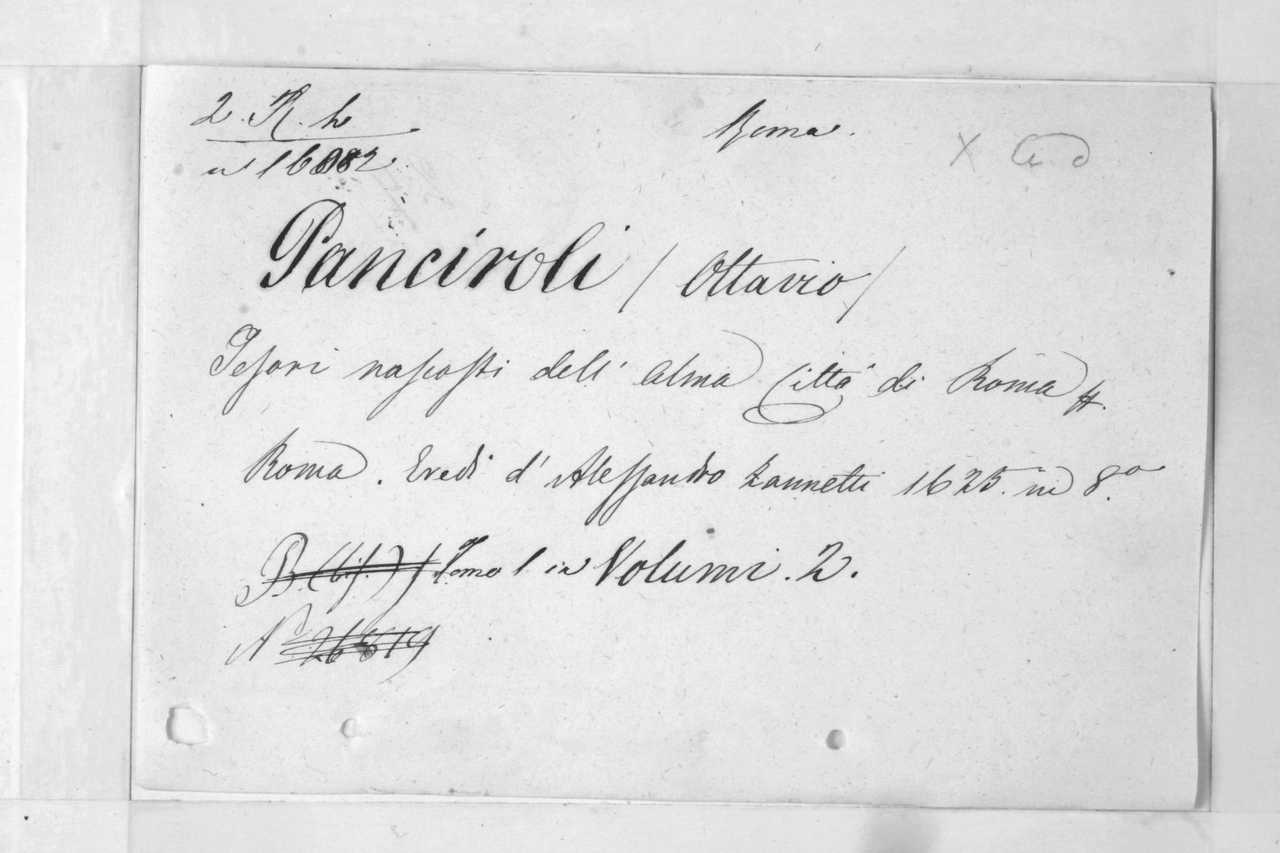 2. R. h
n 16882
Roma.
X
Panciroli / Ottavio /
Tesori nascosti dell' alma Città di Roma
Roma. Eredi d' Alessandro Zannetti 1625. in 8.o
Tomo 1 in Volumi. 2.
No 26819